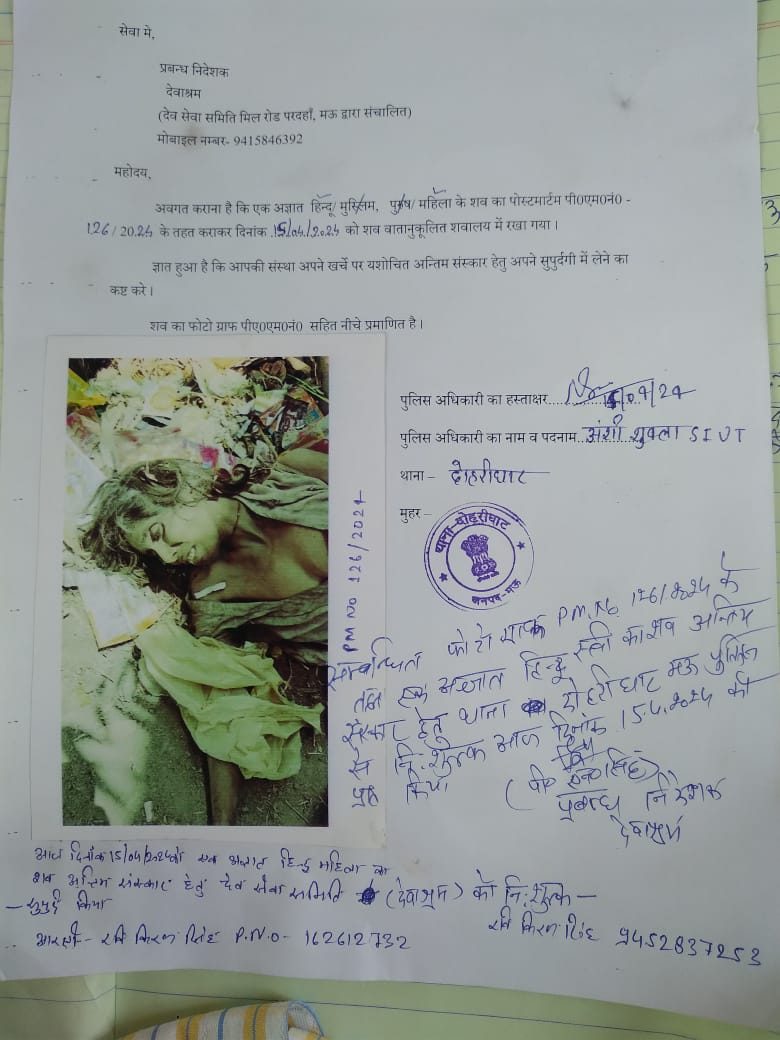 सेवा मे,
प्रबन्ध निदेशक
देवाश्रम
(देव सेवा समिति मिल रोड परदहाँ, मऊ द्वारा संचालित)
मोबाइल नम्बर- 9415846392
महोदय,
अवगत कराना है कि एक अज्ञात हिन्दू/ मुस्लिम, पुरुष/ महिला के शव का पोस्टमार्टम पी0एम0नं0 -
126/ 2024 के तहत कराकर दिनांक 15/04/2024 को शव वातानुकूलित शवालय में रखा गया।
ज्ञात हुआ है कि आपकी संस्था अपने खर्चे पर यशोचित अन्तिम संस्कार हेतु अपने सुपुर्दगी में लेने का
कष्ट करे।
शव का फोटो ग्राफ पीए0एम0नं0 सहित नीचे प्रमाणित है।
पुलिस अधिकारी का हस्ताक्षर
पुलिस अधिकारी का नाम व पदनाम..अंशी शुक्ला SIUT
थाना - दोहरीघाट
मुहर -
थाना-दोहरीघाट
जनपद-मऊ
PM No 126/2024
सम्बन्धित फोटो ग्राफ P.M.No. 126/2024 के
एक अज्ञात हिन्दू स्त्री का शव अन्तिम
संस्कार हेतु थाना दोहरीघाट मऊ पुलिस
से नि:शुल्क आज दिनांक 15.4.2024 को
किया।
प्रबन्ध निदेशक
देवाश्रम
आज दिनाँक 15/04/2024 को एक अज्ञात हिन्दू महिला का
शव अन्तिम संस्कार हेतु देव सेवा समिति (देवाश्रम) को नि:शुल्क -
- सुपुर्द किया
रवि किरन सिंह 9452837253
आरक्षी - रवि किरन सिंह P.N.O- 162612732